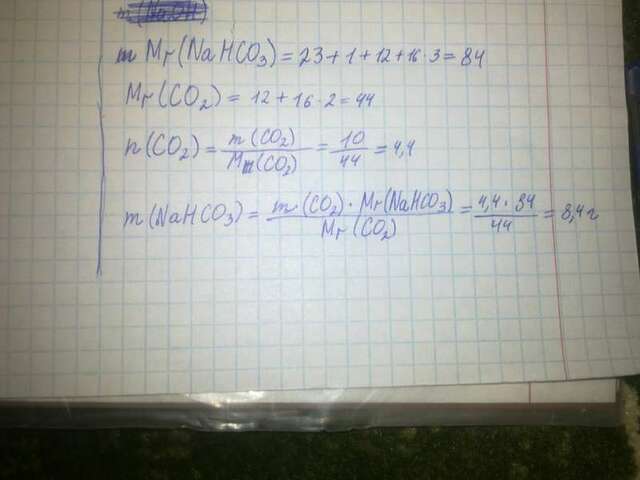 m Mr(NaHCO₃) = 23+1+12+16·3 = 84
Mr(CO₂) = 12+16·2 = 44
n(CO₂) = m(CO₂)/Mm(CO₂) = 10/44 = 4,4
m(NaHCO₃) = m(CO₂)·Mr(NaHCO₃)/Mr(CO₂) = 4,4·84/44 = 8,4г